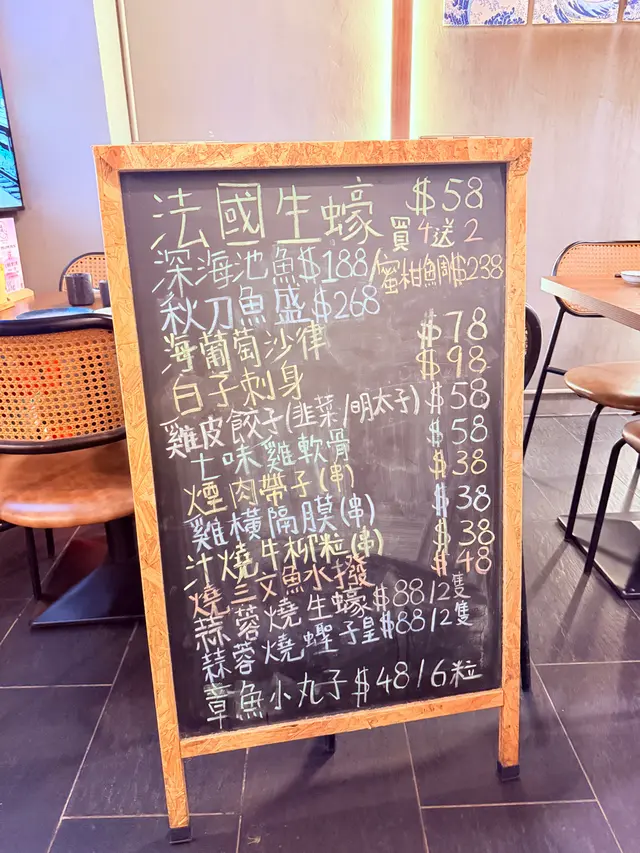 法國生蠔 $58
買4送2
深海池魚$188/蜜柑鯛$238
秋刀魚盛$268
海葡萄沙律 $78
白子刺身 $98
雞皮餃子(韭菜/明太子) $58
七味雞軟骨 $58
煙肉帶子(串) $38
雞橫隔膜(串) $38
汁燒牛柳粒(串) $38
燒三文魚水撥 $48
蒜蓉燒生蠔$88/2隻
蒜蓉燒蟶子皇$88/2隻
章魚小丸子$48/6粒